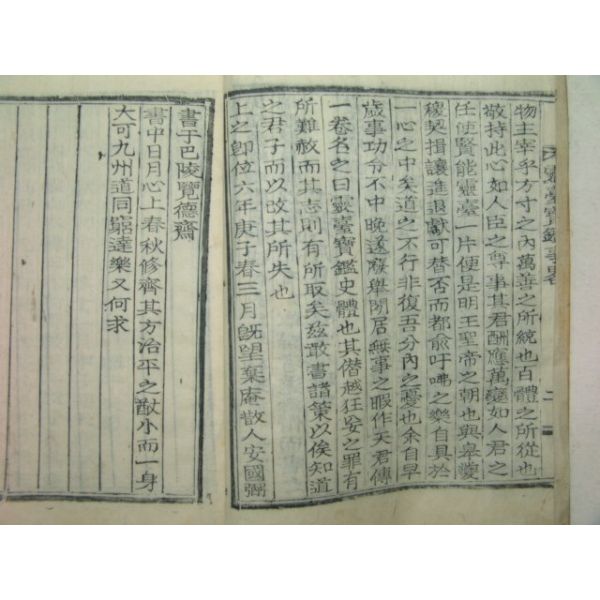 天君靈臺寶鑑事畧
二
物主宰乎方寸之內萬善之所統也百體之所從也
敬持此心如人臣之尊事其君酬應萬變如人君之
任使賢能靈臺一片便是明王聖帝之朝也與皋夔
稷契揖讓進退獻可替否而都兪吁咈之樂自具於
一心之中矣道之不行非復吾分內之憂也余自早
歲事功令不中晚遂廢擧閒居無事之暇作天君傳
一卷名之曰靈臺寶鑑史體也其僭越狂妄之罪有
所難赦而其志則有所取矣玆敢書諸策以俟知道
之君子而以改其所失也
上之卽位六年庚子春三月旣望棄庵散人安國弼
書于巴陵覽德齋
書中日月心上春秋修齊其方治平之猷小而一身
大可九州道同窮達樂又何求